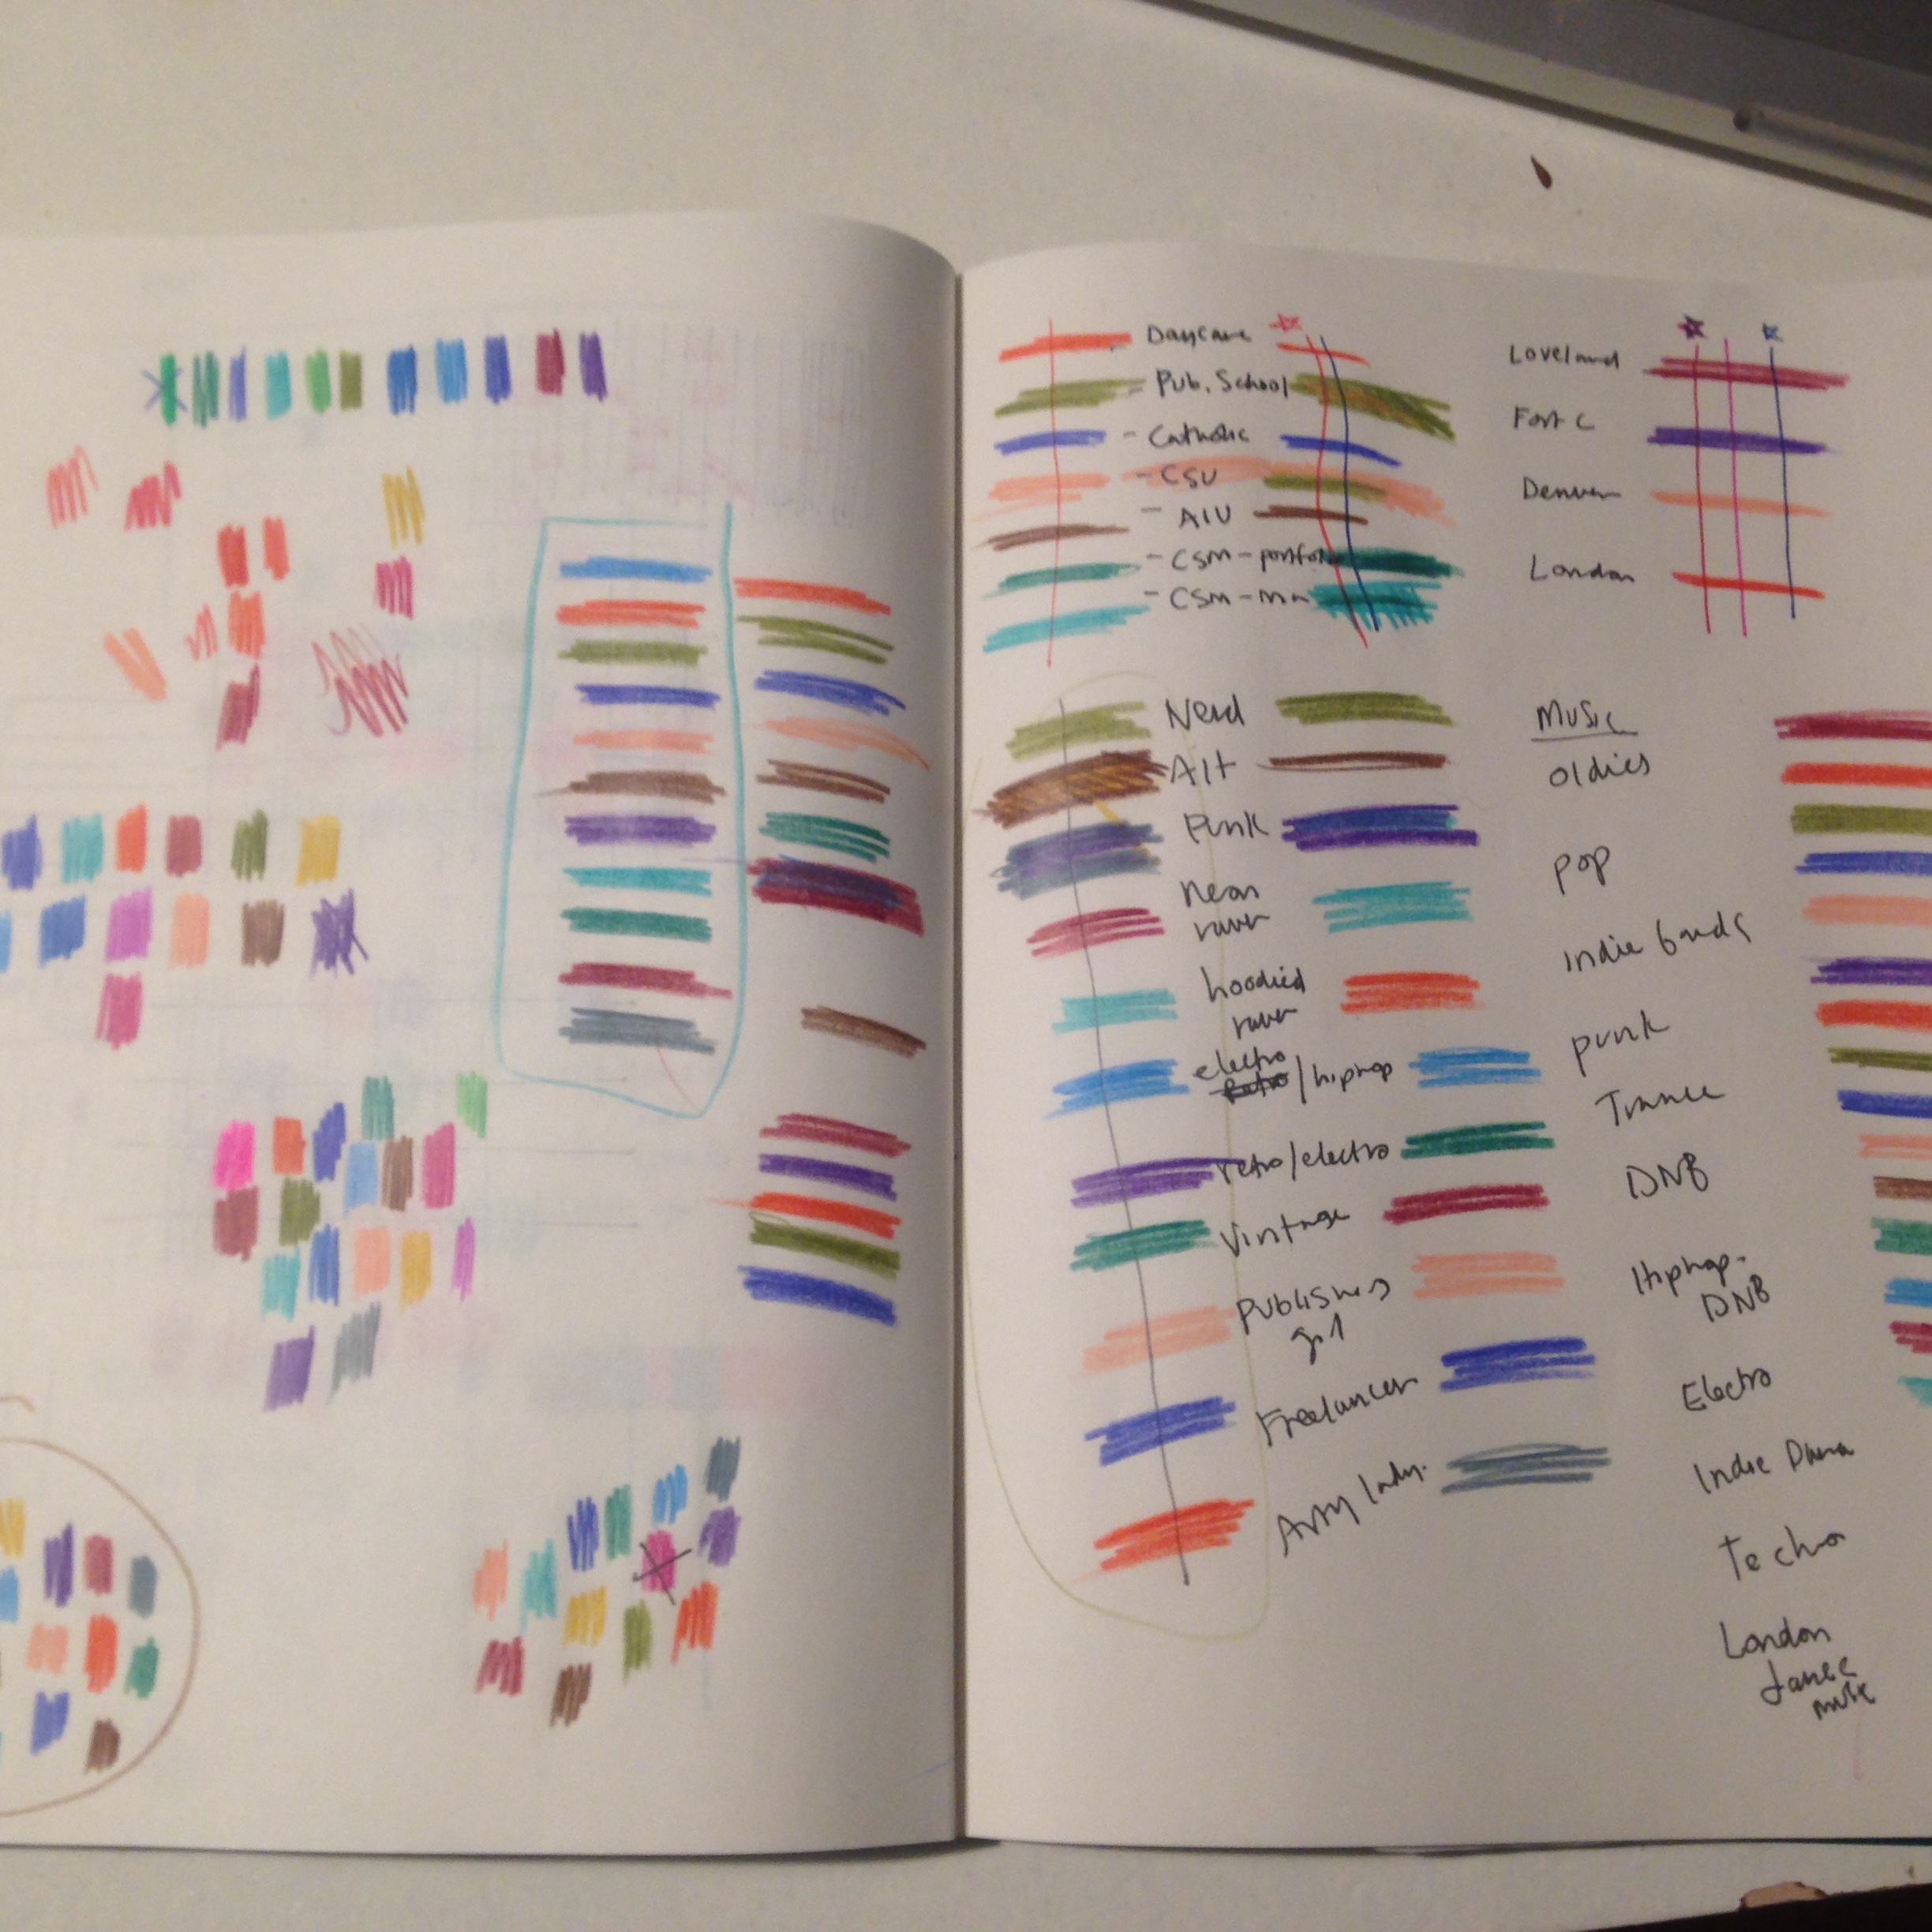 Daycare
- Pub. School
- Catholic
- CSU
- AIU
- CSM - portfolio
- CSM - ma
Loveland
Fort C
Denver
London
Nerd
Alt
Punk
neon
raver
hoodied
raver
electro
/hiphop
retro/electro
Vintage
Publishing
girl
Freelancer
Artsy lady.
Music
oldies
pop
indie bands
punk
Trance
DNB
Hiphop-
DNB
Electro
Indie Dance
Techno
London
dance